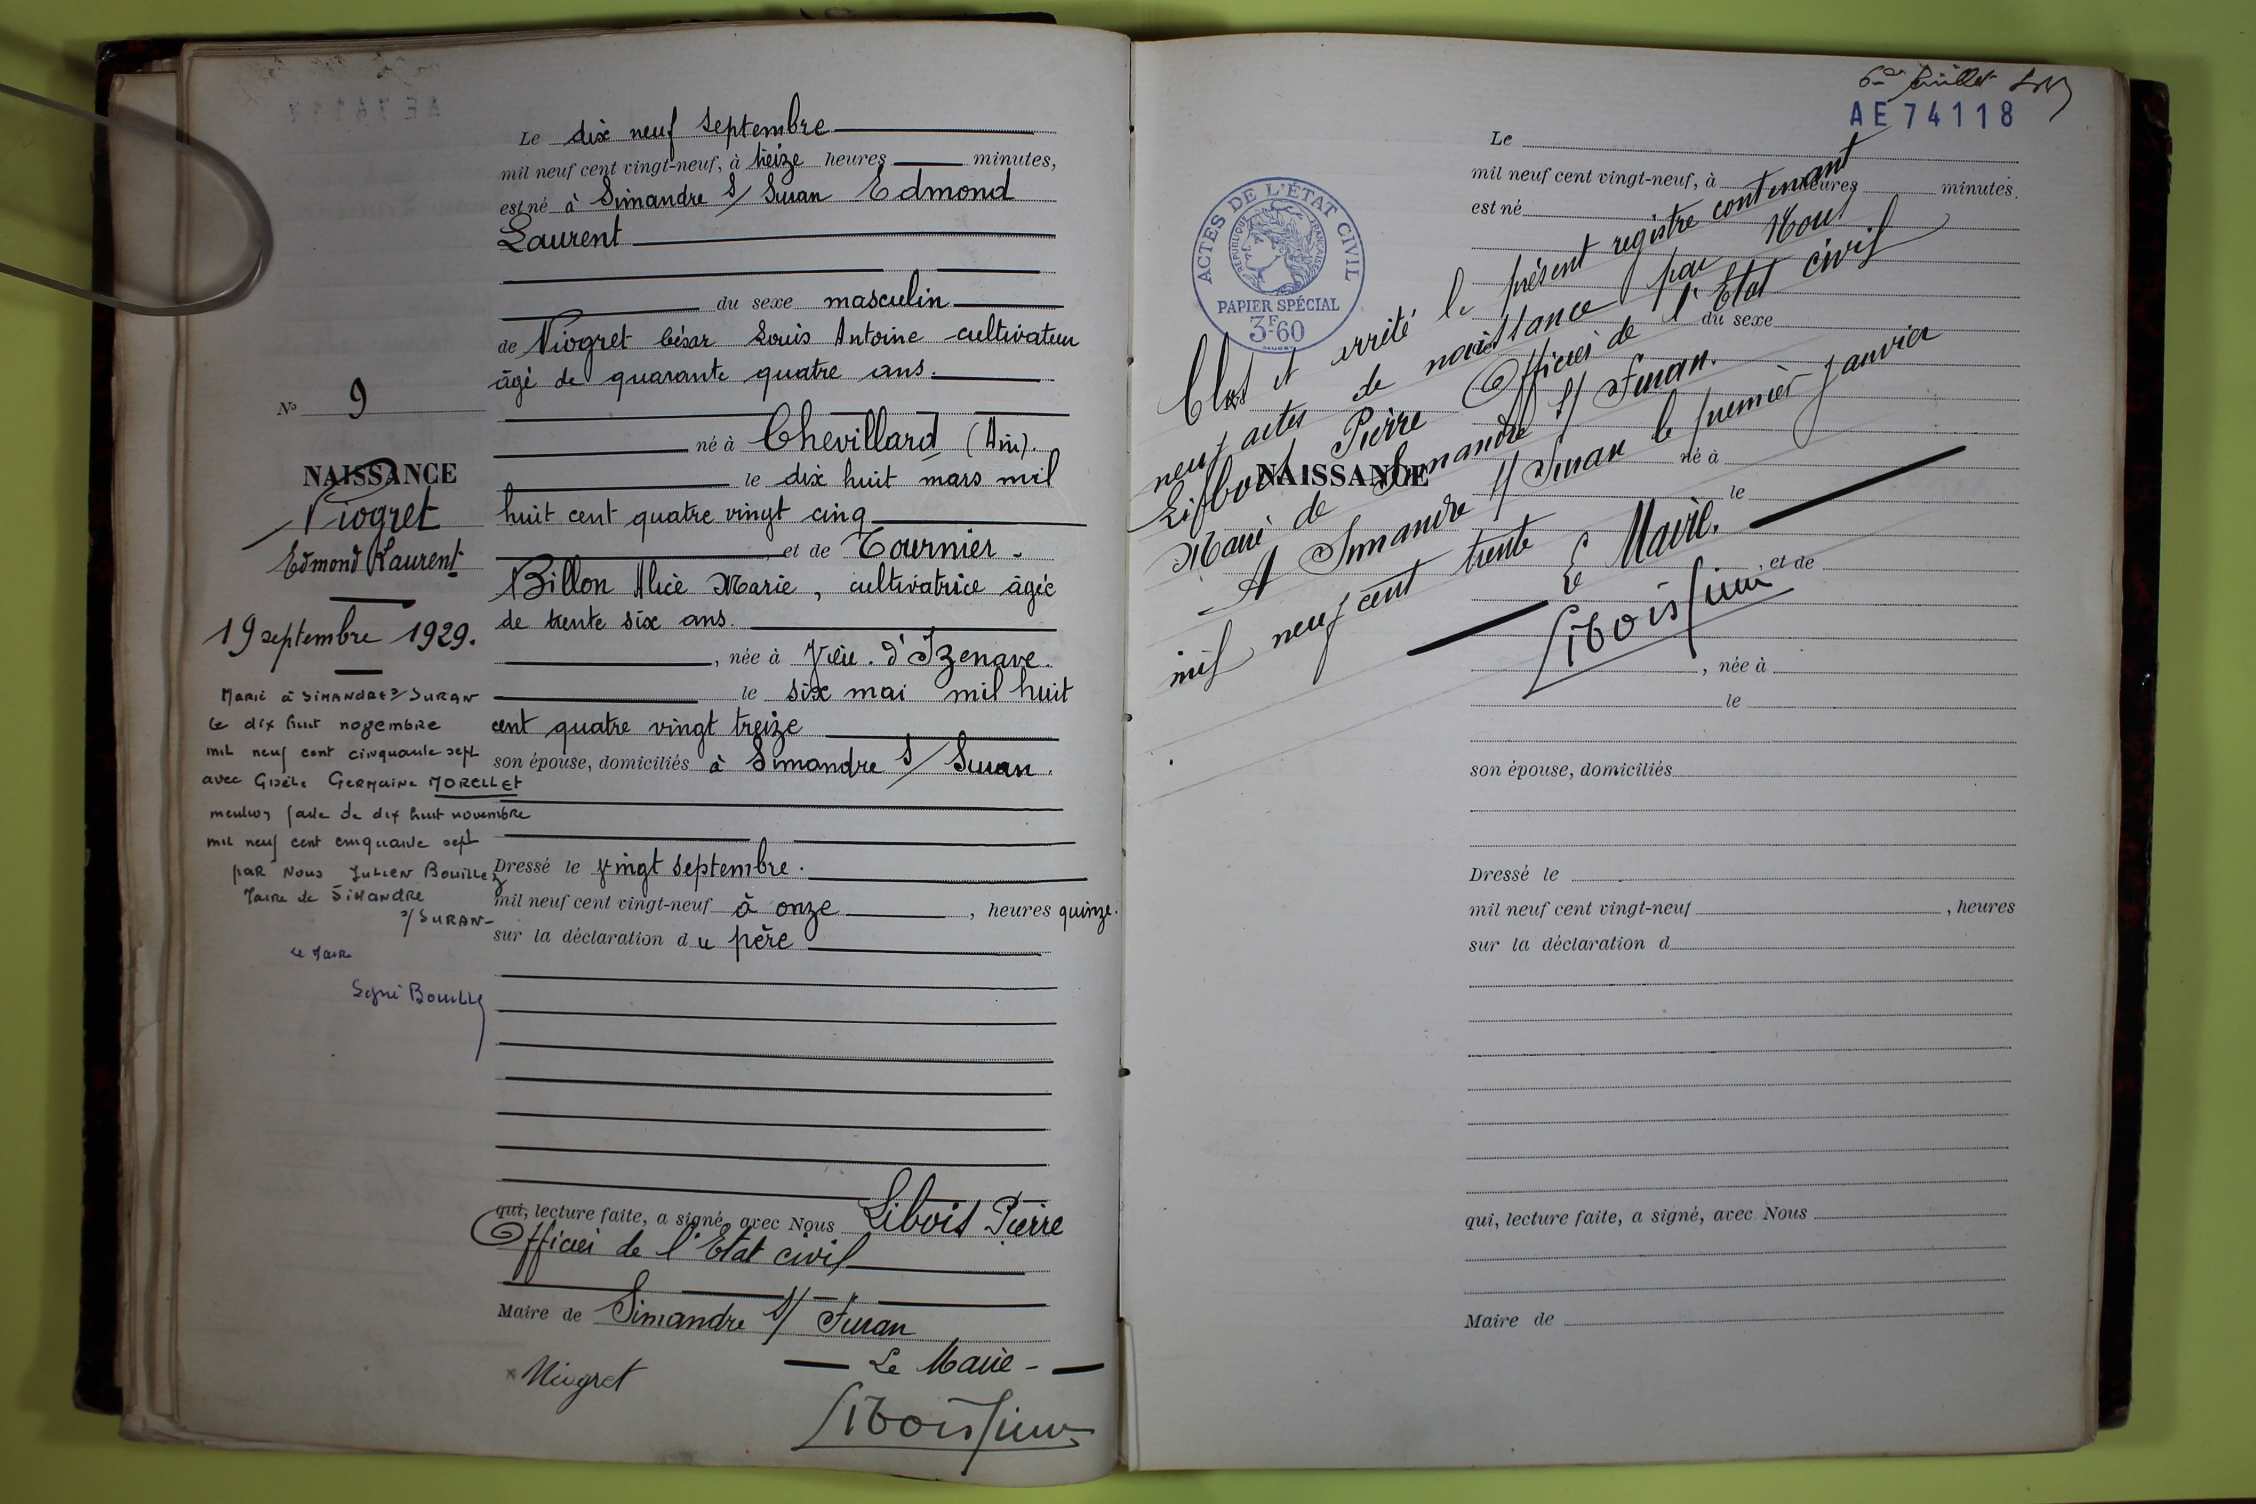 Le dix neuf septembre
mil neuf cent vingt-neuf, à treize heures minutes,
est né à Simandre s/ Suran Edmond
Laurent
du sexe masculin
de Niogret César Louis Antoine cultivateur
âgé de quarante quatre ans.
né à Chevillard (Ain).
le dix huit mars mil
huit cent quatre vingt cinq
et de Tournier-
Billon Alice Marie, cultivatrice âgée
de trente six ans.
, née à Vieu. d'Izenave.
le six mai mil huit
cent quatre vingt treize
son épouse, domiciliés à Simandre s/ Suran.
Dressé le vingt septembre.
mil neuf cent vingt-neuf à onze , heures quinze.
sur la déclaration du père
qui, lecture faite, a signé avec Nous Libois Pierre
Officier de l'Etat civil
Maire de Simandre s/ Suran
Le Maire
Niogret
Libois Pierre
No 9
NAISSANCE
Niogret
Edmond Laurent
19 septembre 1929.
Marié à SIMANDRE s/ SURAN
le dix huit novembre
mil neuf cent cinquante sept
avec Gisèle Germaine MORELLET
mention faite le dix huit novembre
mil neuf cent cinquante sept
par nous Julien Bouilloz
Maire de SIMANDRE
s/ SURAN-
Le Maire
Signé
AE 74118
6me feuillet
ACTES DE L'ÉTAT CIVIL
RÉPUBLIQUE FRANÇAISE
PAPIER SPÉCIAL
3F.60
Clos et arrêté le présent registre contenant
neuf actes de naissance par Nous
Libois Pierre Officier de l'Etat civil
Maire de Simandre s/ Suran.
A Simandre s/ Suran le premier janvier
mil neuf cent trente
Le Maire.
Libois Pierre
NAISSANCE
Le
mil neuf cent vingt-neuf, à heures minutes.
est né
du sexe
né à
le
, et de
, née à
le
son épouse, domiciliés
Dressé le
mil neuf cent vingt-neuf , heures
sur la déclaration d
qui, lecture faite, a signé, avec Nous
Maire de